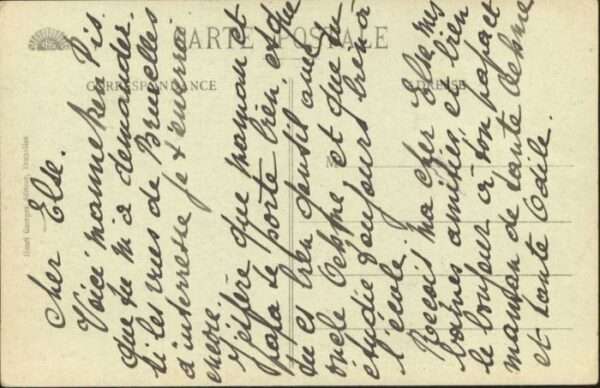 CARTE POSTALE
CORRESPONDANCE
ADRESSE
Cher Else.
Voici manneken Pis.
que tu m'a demander.
si les vues de Bruxelles
d'interresse je t'enverrai
encore.
J'espère que maman et
papa se porte bien, et que
tu es bien gentil avec
oncle et que tu
étudie toujours bien à
l'école.
Recois ma cher Else mes
bonnes amitiés et bien
le bonjour à ton papa et
maman de tante
et tante Odile.